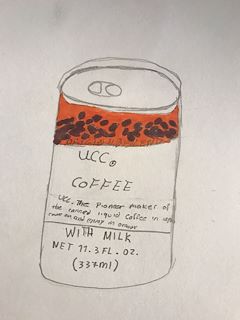 UCC®
COFFEE
UCC. The Pioneer maker of
the canned liquid coffee in
WITH MILK
NET 11.3 FL. OZ.
(337ml)